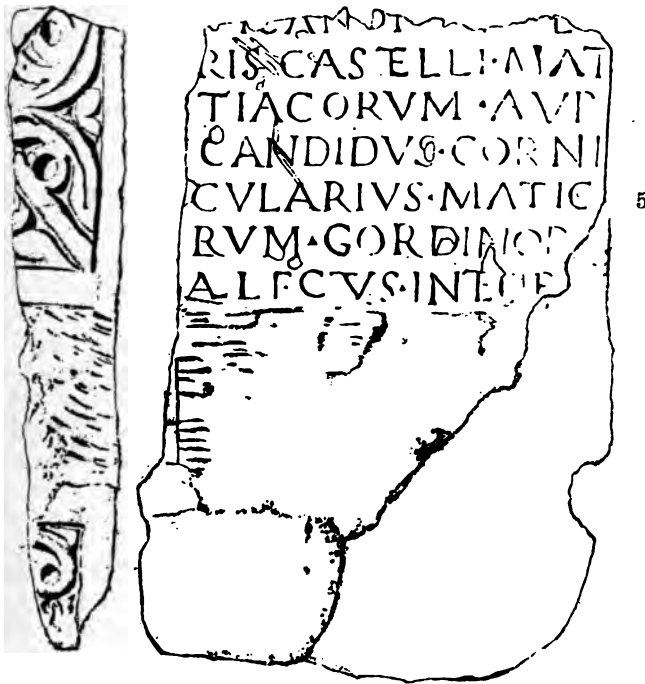 RIS·CASTELLI·MAT
TIACORVM·AVR
CANDIDVS·CORNI
CVLARIVS·MATIC
RVM·GORDI
ALECTVS·INT
5